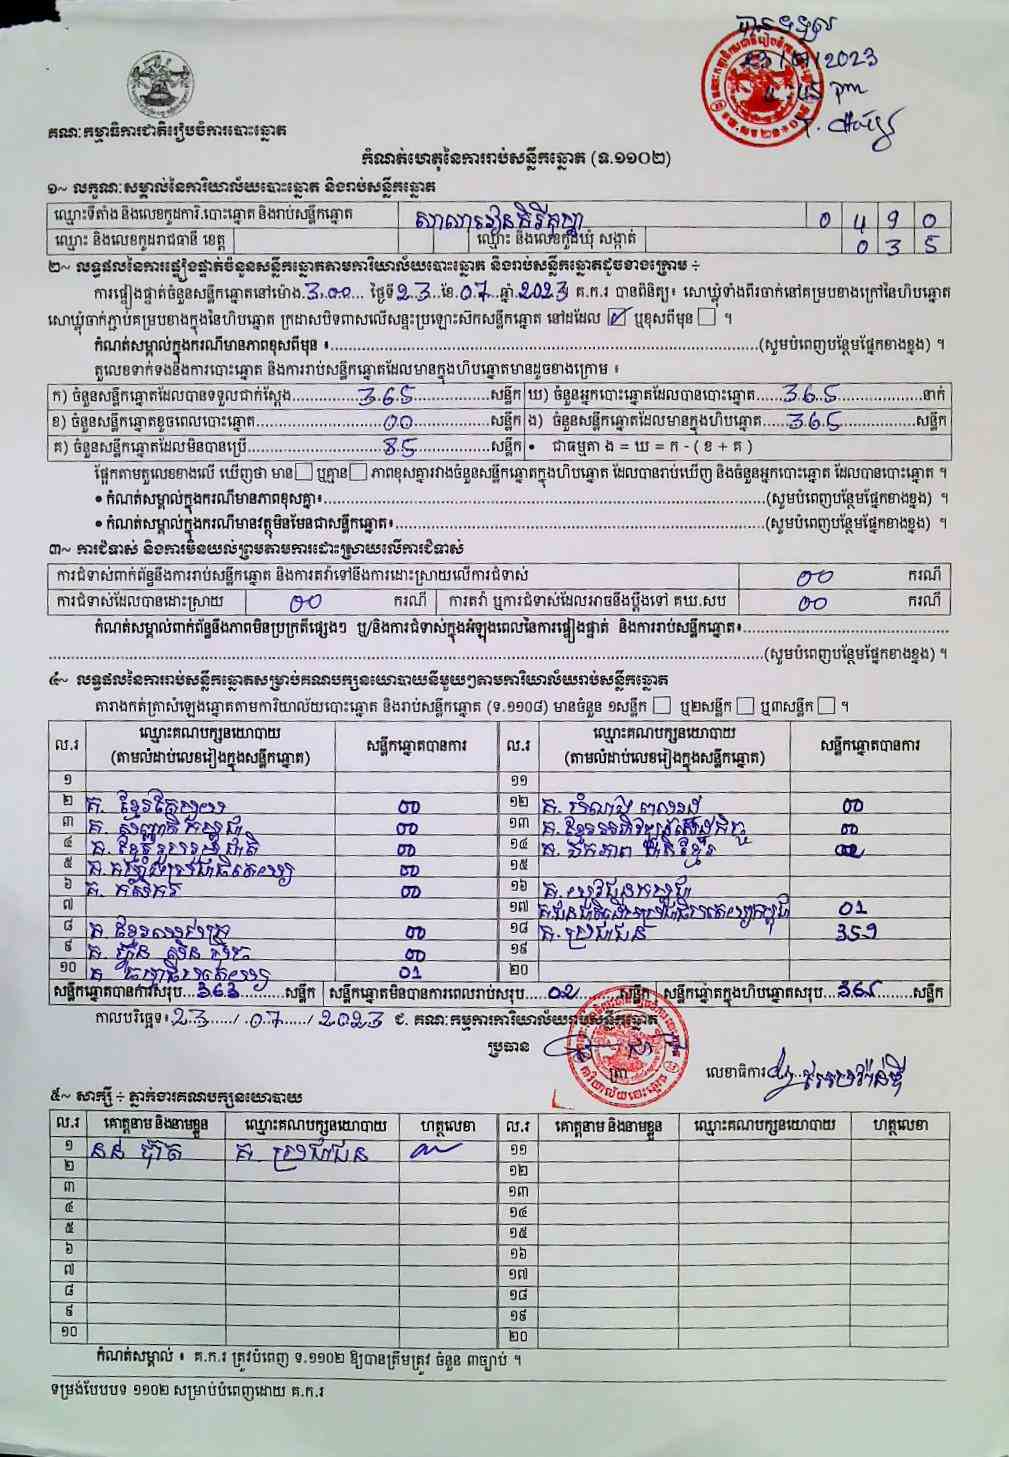 បានទទួល
23/7/2023
គណៈកម្មាធិការជាតិរៀបចំការបោះឆ្នោត
កំណត់ហេតុនៃការរាប់សន្លឹកឆ្នោត (ទ.១១០២)
១~ លក្ខណៈសម្គាល់នៃការិយាល័យបោះឆ្នោត និងរាប់សន្លឹកឆ្នោត
ឈ្មោះទីតាំង និងលេខកូដការិ.បោះឆ្នោត និងរាប់សន្លឹកឆ្នោត 0 4 9 0
ឈ្មោះ និងលេខកូដរាជធានី ខេត្ត ឈ្មោះ និងលេខកូដឃុំ សង្កាត់ 0 3 5
២~ លទ្ធផលនៃការផ្ទៀងផ្ទាត់ចំនួនសន្លឹកឆ្នោតតាមការិយាល័យបោះឆ្នោត និងរាប់សន្លឹកឆ្នោតដូចខាងក្រោម ÷
ការផ្ទៀងផ្ទាត់ចំនួនសន្លឹកឆ្នោតនៅម៉ោង.3.00... ថ្ងៃទី23...ខែ.07..ឆ្នាំ.2023 គ.ក.រ បានពិនិត្យ៖ សោឃ្លុំទាំងពីរចាក់នៅគម្របខាងក្រៅនៃហិបឆ្នោត
សោឃ្លុំចាក់ភ្ជាប់គម្របខាងក្នុងនៃហិបឆ្នោត ក្រដាសបិទពាសលើសន្ទះប្រឡោះស៊កសន្លឹកឆ្នោត នៅដដែល ☑ ឬខុសពីមុន ☐ ។
កំណត់សម្គាល់ក្នុងករណីមានភាពខុសពីមុន ៖......(សូមបំពេញបន្ថែមផ្នែកខាងខ្នង) ។
តួលេខទាក់ទងនឹងការបោះឆ្នោត និងការរាប់សន្លឹកឆ្នោតដែលមានក្នុងហិបឆ្នោតមានដូចខាងក្រោម ៖
ក) ចំនួនសន្លឹកឆ្នោតដែលបានទទួលជាក់ស្តែង......365......សន្លឹក ឃ) ចំនួនអ្នកបោះឆ្នោតដែលបានបោះឆ្នោត......365......នាក់
ខ) ចំនួនសន្លឹកឆ្នោតខូចពេលបោះឆ្នោត......00......សន្លឹក ង) ចំនួនសន្លឹកឆ្នោតដែលមានក្នុងហិបឆ្នោត......365......សន្លឹក
គ) ចំនួនសន្លឹកឆ្នោតដែលមិនបានប្រើ......85......សន្លឹក • ជាធម្មតា ង = ឃ = ក - ( ខ + គ )
ផ្អែកតាមតួលេខខាងលើ ឃើញថា មាន☐ ឬគ្មាន☐ ភាពខុសគ្នារវាងចំនួនសន្លឹកឆ្នោតក្នុងហិបឆ្នោត ដែលបានរាប់ឃើញ និងចំនួនអ្នកបោះឆ្នោត ដែលបានបោះឆ្នោត ។
• កំណត់សម្គាល់ក្នុងករណីមានភាពខុសគ្នា៖......(សូមបំពេញបន្ថែមផ្នែកខាងខ្នង) ។
• កំណត់សម្គាល់ក្នុងករណីមានវត្ថុមិនមែនជាសន្លឹកឆ្នោត៖......(សូមបំពេញបន្ថែមផ្នែកខាងខ្នង) ។
៣~ ការជំទាស់ និងការមិនយល់ព្រមតាមការដោះស្រាយលើការជំទាស់
ការជំទាស់ពាក់ព័ន្ធនឹងការរាប់សន្លឹកឆ្នោត និងការតវ៉ាទៅនឹងការដោះស្រាយលើការជំទាស់ 00 ករណី
ការជំទាស់ដែលបានដោះស្រាយ 00 ករណី ការតវ៉ា ឬការជំទាស់ដែលអាចនឹងប្តឹងទៅ គឃ.សប 00 ករណី
កំណត់សម្គាល់ពាក់ព័ន្ធនឹងភាពមិនប្រក្រតីផ្សេងៗ ឬ/និងការជំទាស់ក្នុងអំឡុងពេលនៃការផ្ទៀងផ្ទាត់ និងការរាប់សន្លឹកឆ្នោត៖......
......(សូមបំពេញបន្ថែមផ្នែកខាងខ្នង) ។
៤~ លទ្ធផលនៃការរាប់សន្លឹកឆ្នោតសម្រាប់គណបក្សនយោបាយនីមួយៗតាមការិយាល័យរាប់សន្លឹកឆ្នោត
តារាងកត់ត្រាសំឡេងឆ្នោតតាមការិយាល័យបោះឆ្នោត និងរាប់សន្លឹកឆ្នោត (ទ.១១០៨) មានចំនួន ១សន្លឹក ☐ ឬ២សន្លឹក ☐ ឬ៣សន្លឹក ☐ ។
ល.រ ឈ្មោះគណបក្សនយោបាយ (តាមលំដាប់លេខរៀងក្នុងសន្លឹកឆ្នោត) សន្លឹកឆ្នោតបានការ ល.រ ឈ្មោះគណបក្សនយោបាយ (តាមលំដាប់លេខរៀងក្នុងសន្លឹកឆ្នោត) សន្លឹកឆ្នោតបានការ
១ ១១
២ គ. ខ្មែរតែមួយ 00 ១២ 00
៣ 00 ១៣ 00
៤ គ. ខ្មែររួបរួមជាតិ 00 ១៤ គ. ឯកភាពជាតិខ្មែរ 00
៥ 00 ១៥
៦ គ. កសិករ 00 ១៦ គ. យុវជនកម្ពុជា
៧ ១៧ 01
៨ 00 ១៨ គ. ប្រជាជន 359
៩ គ. ហ្វ៊ុនស៊ិនប៉ិច 00 ១៩
១០ 01 ២០
សន្លឹកឆ្នោតបានការសរុប...363......សន្លឹក សន្លឹកឆ្នោតមិនបានការពេលរាប់សរុប....02......សន្លឹក សន្លឹកឆ្នោតក្នុងហិបឆ្នោតសរុប...365......សន្លឹក
កាលបរិច្ឆេទ៖ 23 / 07 / 2023 ជ. គណៈកម្មការការិយាល័យរាប់សន្លឹកឆ្នោត
ប្រធាន
ត្រា លេខាធិការ
៥~ សាក្សី ÷ ភ្នាក់ងារគណបក្សនយោបាយ
ល.រ គោត្តនាម និងនាមខ្លួន ឈ្មោះគណបក្សនយោបាយ ហត្ថលេខា ល.រ គោត្តនាម និងនាមខ្លួន ឈ្មោះគណបក្សនយោបាយ ហត្ថលេខា
១ គ. ប្រជាជន ១១
២ ១២
៣ ១៣
៤ ១៤
៥ ១៥
៦ ១៦
៧ ១៧
៨ ១៨
៩ ១៩
១០ ២០
កំណត់សម្គាល់ ៖ គ.ក.រ ត្រូវបំពេញ ទ.១១០២ ឱ្យបានត្រឹមត្រូវ ចំនួន ៣ច្បាប់ ។
ទម្រង់បែបបទ ១១០២ សម្រាប់បំពេញដោយ គ.ក.រ